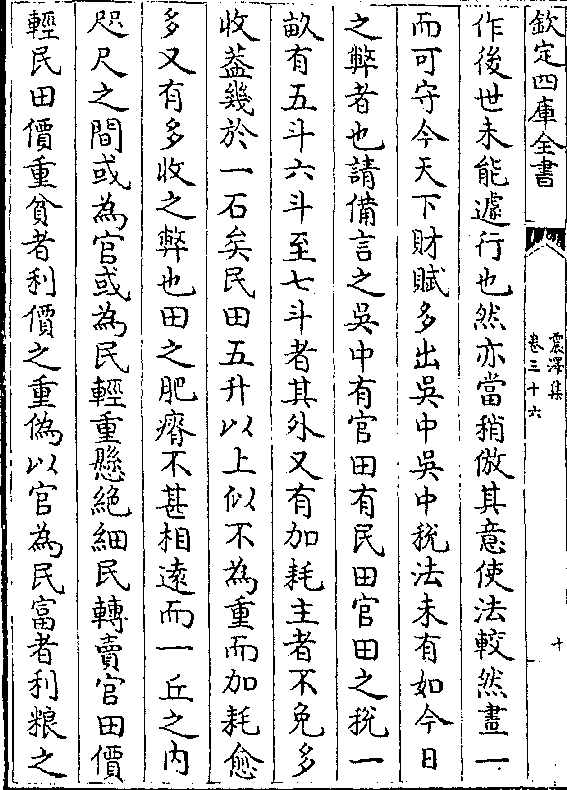 欽定四庫全書
震澤集
卷三十六
十
作後世未能遽行也然亦當稍倣其意使法較然畫一
而可守今天下財賦多出吳中吳中税法未有如今日
之弊者也請備言之吳中有官田有民田官田之税一
畝有五斗六斗至七斗者其外又有加耗主者不免多
收葢幾於一石矣民田五升以上似不為重而加耗愈
多又有多收之弊也田之肥瘠不甚相遠而一丘之内
咫尺之間或為官或為民輕重懸絶細民轉賣官田價
輕民田價重貧者利價之重偽以官為民富者利粮之